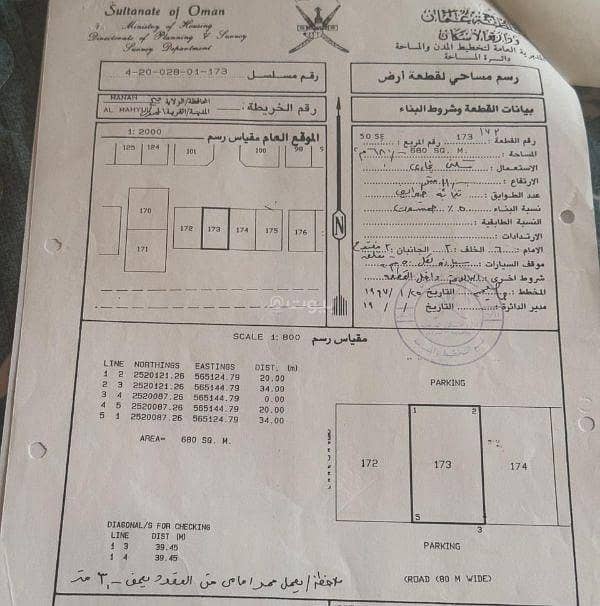 Sultanate of Oman
Ministry of Housing
Directorate of Planning & Survey
Survey Department
وزارة الإسكان
المديرية العامة لتخطيط المدن والمساحة
دائرة المساحة
4-20-028-01-173
رقم مسلسل
رسم مساحي لقطعة أرض
MANAH
AL MAHYUL
المحافظة/الولاية
المدينة/القرية
رقم الخريطة
بيانات القطعة وشروط البناء
1: 2000
الموقع العام مقياس رسم
125 124 101 100 98
170
171
172 173 174 175 176
N
رقم القطعة : 173 ١٧٣ رقم المربع : 50 SE
المساحة : 680 SQ. M. ٦٨٠ م٢
الاستعمال :
الارتفاع :
عدد الطوابق :
نسبة البناء : ٥٠٪
النسبة الطابقية :
الارتدادات :
الامام : ٦ الخلف : ٢ الجانبان : ٢
موقف السيارات :
شروط اخرى : داخل القطعة
المخطط : التاريخ
مدير الدائرة : التاريخ / / ١٩
SCALE 1: 800 مقياس رسم
LINE NORTHINGS EASTINGS DIST. (M)
1 2 2520121.26 565124.79 20.00
2 3 2520121.26 565144.79 34.00
3 4 2520087.26 565144.79 0.00
4 5 2520087.26 565144.79 20.00
5 1 2520087.26 565124.79 34.00
AREA= 680 SQ. M.
PARKING
1 2
172 173 174
5 3
PARKING
(ROAD (80 M WIDE)
DIAGONAL/S FOR CHECKING
LINE DIST (M)
1 3 39.45
1 4 39.45
ملاحظة / يعمل ممر امامي